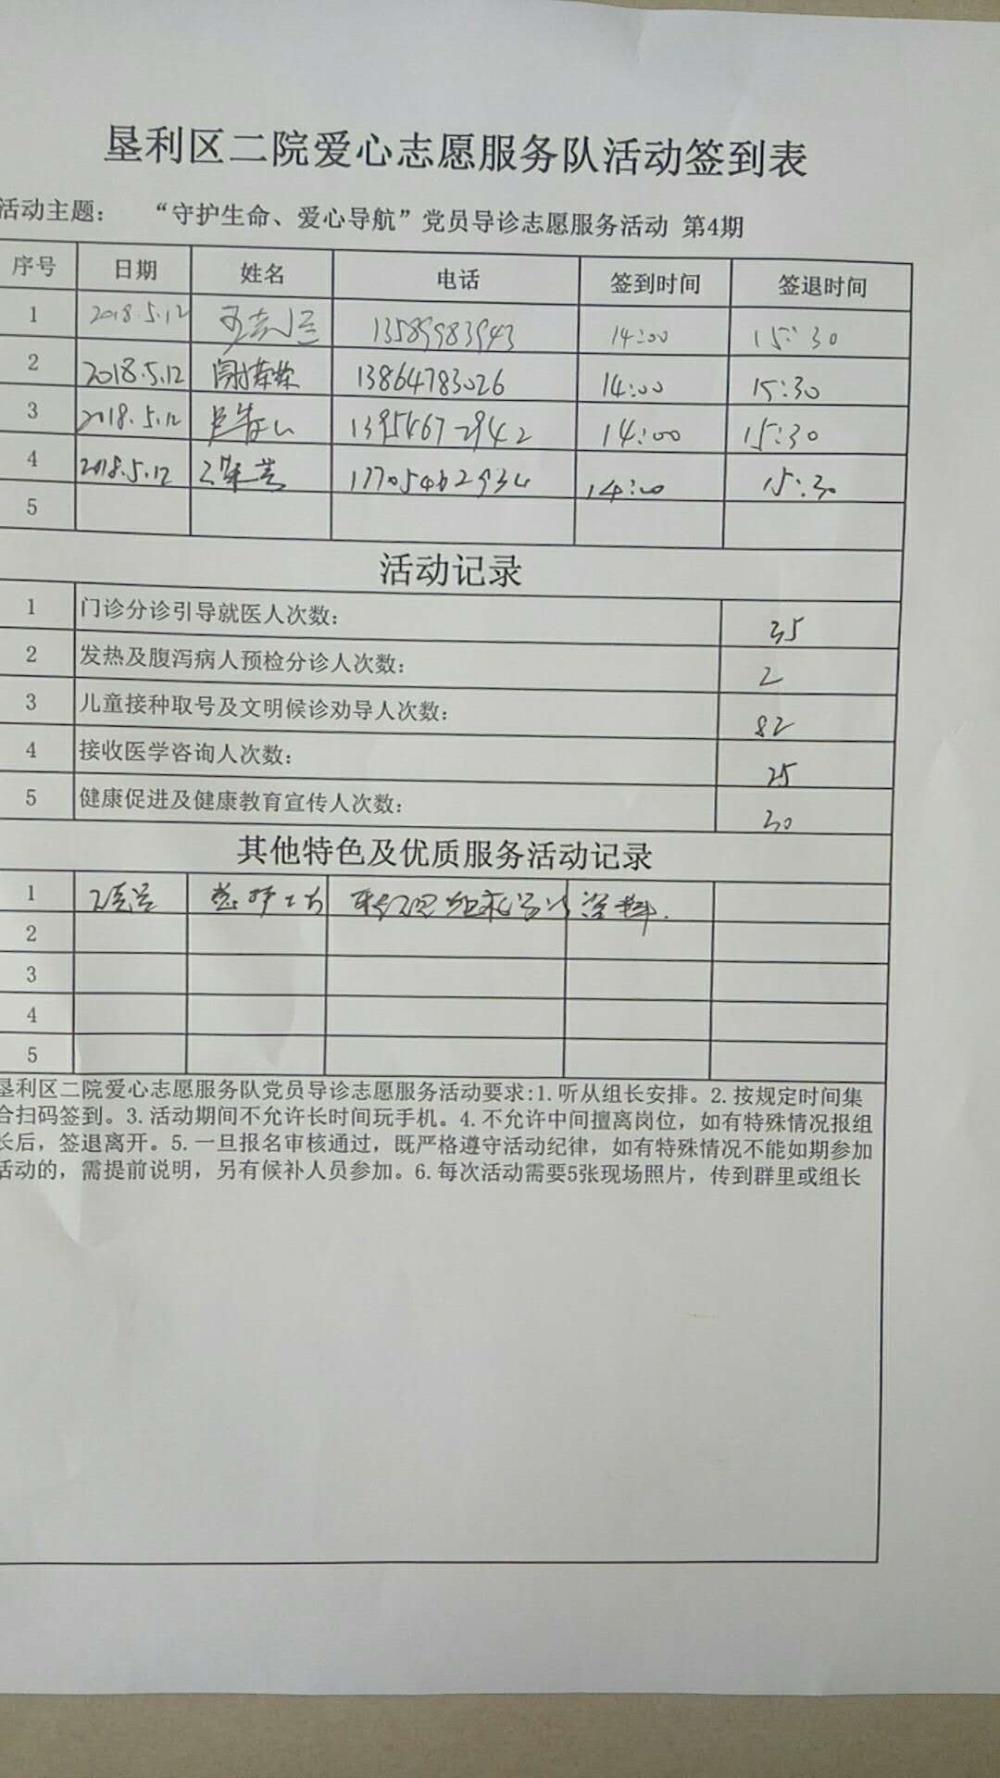 垦利区二院爱心志愿服务队活动签到表
活动主题： “守护生命、爱心导航”党员导诊志愿服务活动 第4期
序号 日期 姓名 电话 签到时间 签退时间
1 2018.5.12 13589983943 14:00 15:30
2 2018.5.12 13864783026 14:00 15:30
3 2018.5.12 13954672942 14:00 15:30
4 2018.5.12 17705462934 14:00 15:30
5
活动记录
1 门诊分诊引导就医人次数： 35
2 发热及腹泻病人预检分诊人次数： 2
3 儿童接种取号及文明候诊劝导人次数： 82
4 接收医学咨询人次数： 25
5 健康促进及健康教育宣传人次数： 30
其他特色及优质服务活动记录
1
2
3
4
5
垦利区二院爱心志愿服务队党员导诊志愿服务活动要求:1.听从组长安排。2.按规定时间集
合扫码签到。3.活动期间不允许长时间玩手机。4.不允许中间擅离岗位，如有特殊情况报组
长后，签退离开。5.一旦报名审核通过，既严格遵守活动纪律，如有特殊情况不能如期参加
活动的，需提前说明，另有候补人员参加。6.每次活动需要5张现场照片，传到群里或组长